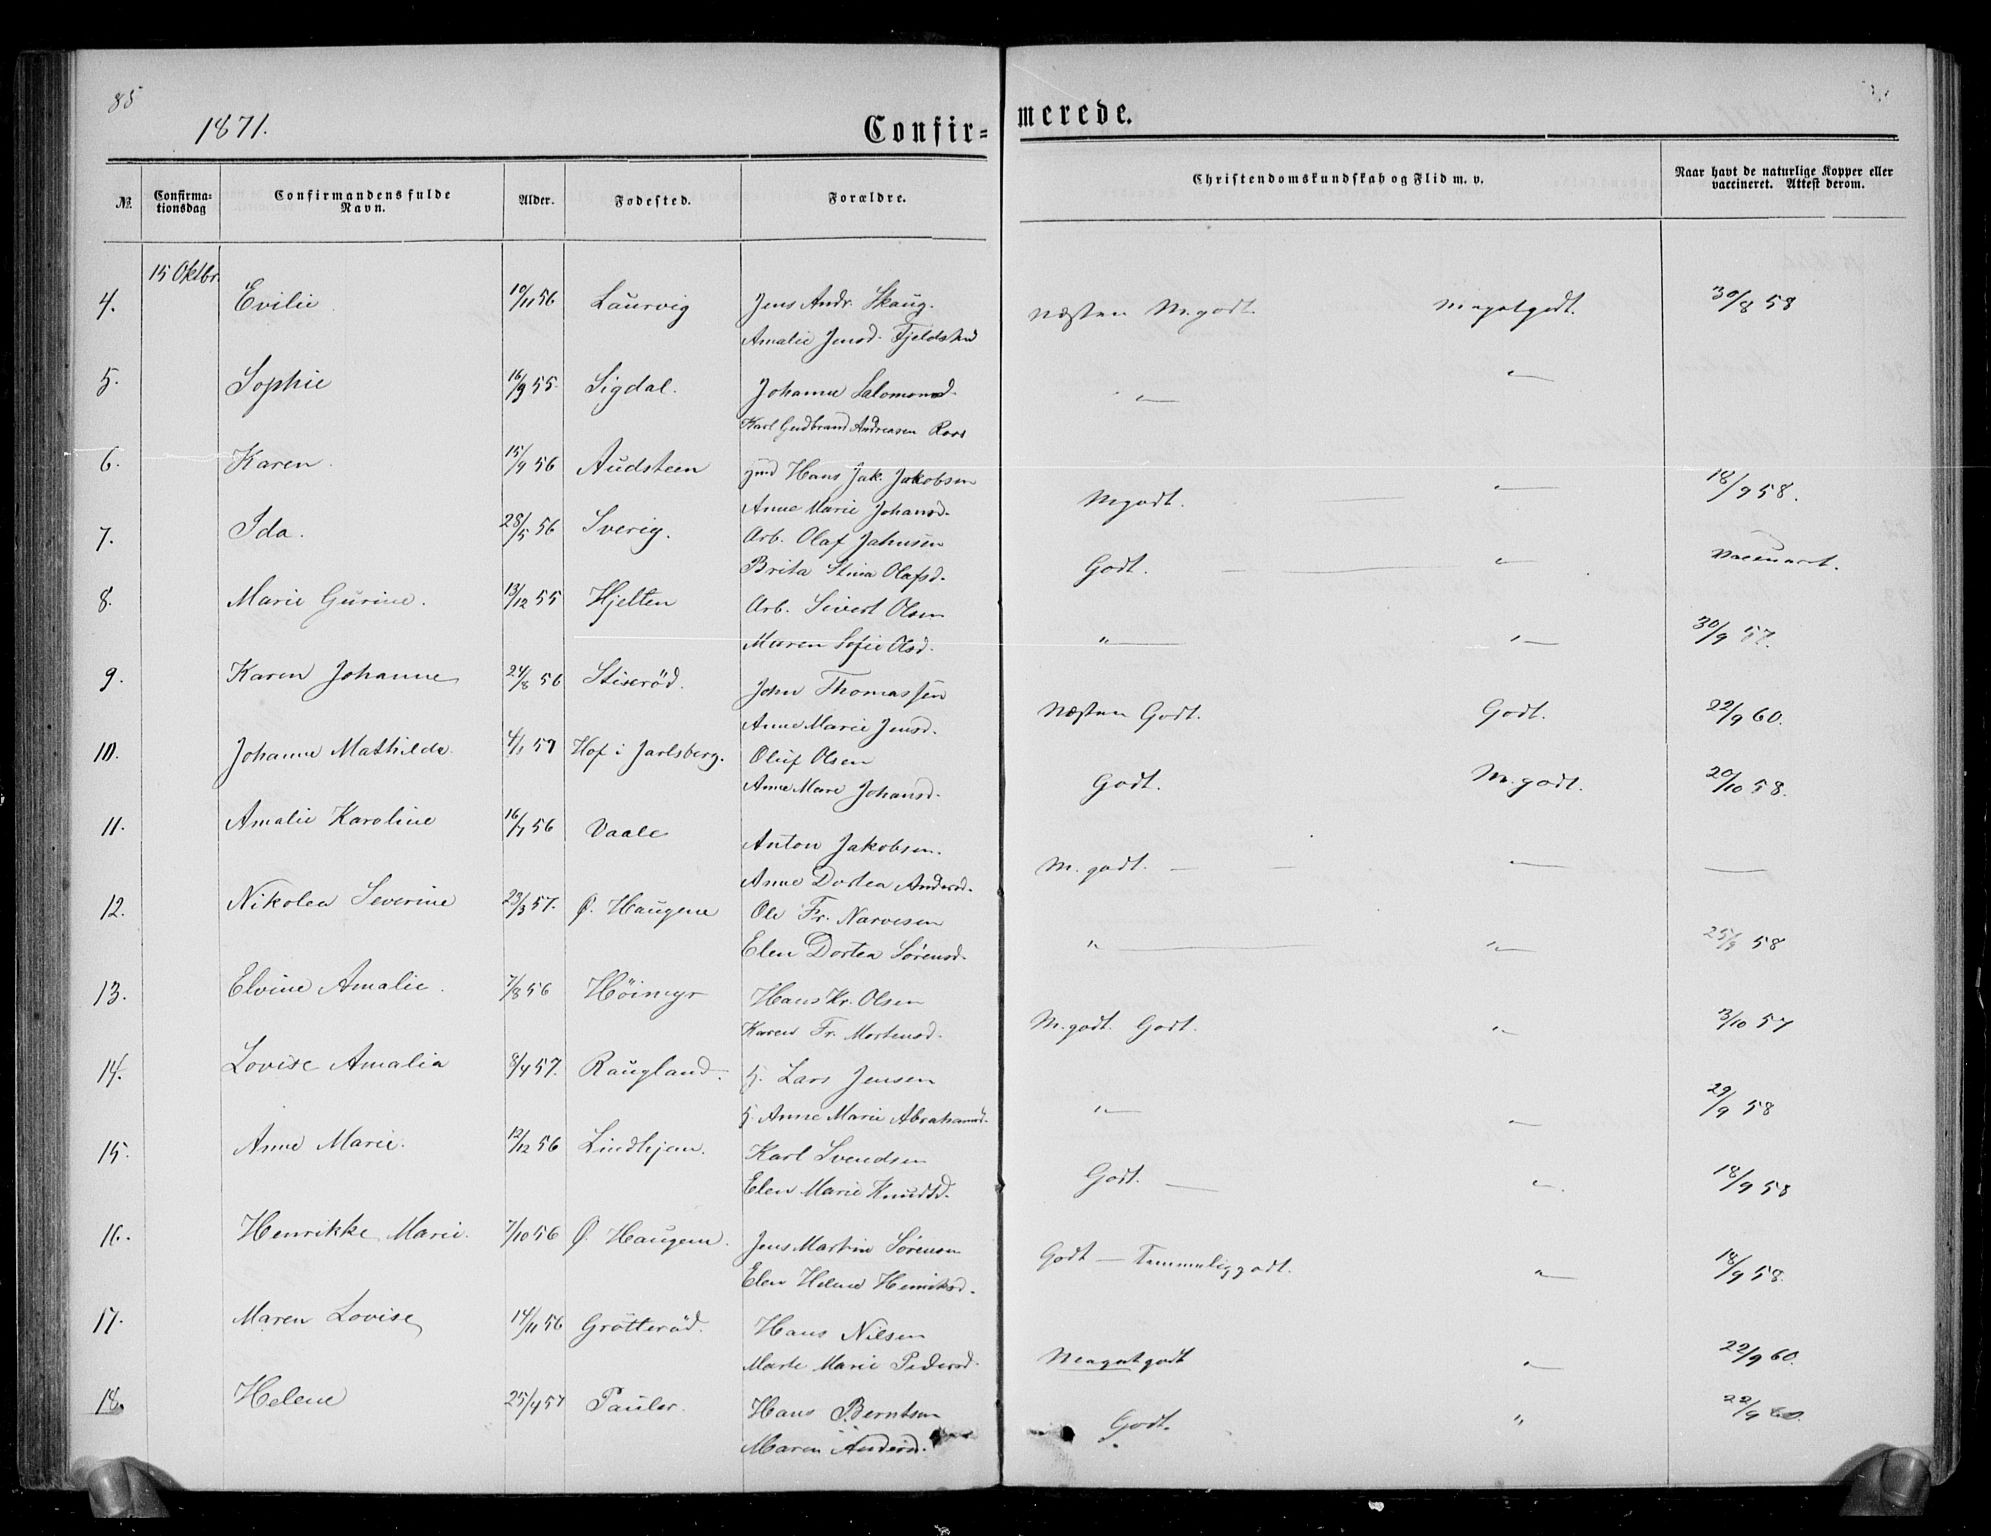 85
1871.
Confir=
merede.
№
Confirma-
tionsdag
Confirmandens fulde
Navn.
Alder.
Fødested.
Forældre.
Christendomskundskab og Flid m. v.
Naar havt de naturlige Kopper eller
vaccineret. Attest derom.
15 Oktbr.
4. Evilie 19/11 56 Laurvig Jens Andr. Skaug. Næsten M. godt. Megetgodt. 30/8 58
Amalie Jensd. Fjeldsked
5. Sophie 16/9 55. Sigdal. Johanne Salomonsd. " — " —
Karl Gudbrand Andreasen Roos
6. Karen. 15/9 56 Audsteen gmd Hans Jak. Jakobsen Mgodt. — " — 18/9 58.
Anne Marie Johansd.
7. Ida. 28/5 56 Sverig. Arb. Olaf Jahnsen Godt. — " —
Brita Stina Olafsd.
8. Marie Gurine. 13/12 55 Hjelten Arb. Sivert Olsen " — " — 30/9 57.
Maren Sofie Olsd.
9. Karen Johanne 24/8 56 Stixrød. John Thomassen Næsten Godt. Godt. 22/9 60.
Anne Marie Jensd.
10. Johanne Mathilde 4/1 57 Hof i Jarlsberg. Oluf Olsen Godt. M. godt. 20/10 58.
Anne Marie Johansd.
11. Amalie Karoline 16/7 56 Vaale Anton Jakobsen. M. godt. — " — —
Anne Dortea Andersd.
12. Nikolea Severine 23/3 57. Ø. Haugene Ole Fr. Narvesen " — " — 25/9 58
Elen Dortea Sørensd.
13. Elvine Amalie. 7/8 56 Høimyr Hans Kr. Olsen M. godt. Godt. " — 3/10 57
Karen Fr. Mortensd.
14. Lovise Amalia 8/4 57. Raugland. G. Lars Jensen " — " — 29/9 58
G. Anne Marie Abrahamsd.
15. Anne Marie. 12/12 56 Lindhjem. Karl Svendsen Godt. — " — 18/9 58
Elen Marie Knudsd.
16. Henrikke Marie. 7/10 56 Ø. Haugene. Jens Martin Sørensen Godt — Temmeliggodt. " — 18/9 58.
Elen Helene Henriksd.
17. Maren Lovise 14/11 56 Grøtterød. Hans Nilsen Megetgodt " — 22/9 60.
Marte Marie Pedersd.
18. Helene 25/4 57 Pauler. Hans Berntsen Godt. " 22/9 60.
Maren Andersd.